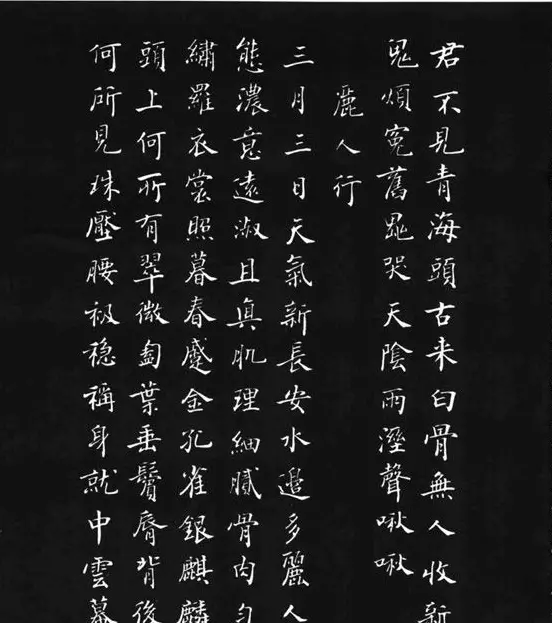 君不見青海頭古来白骨無人收新
鬼煩寃舊鬼哭天陰雨溼聲啾啾
麗人行
三月三日天氣新長安水邊多麗人
態濃意遠淑且真肌理細膩骨肉勻
繡羅衣裳照暮春蹙金孔雀銀麒麟
頭上何所有翠微㔩葉垂鬢脣背後
何所見珠壓腰衱穩稱身就中雲幕